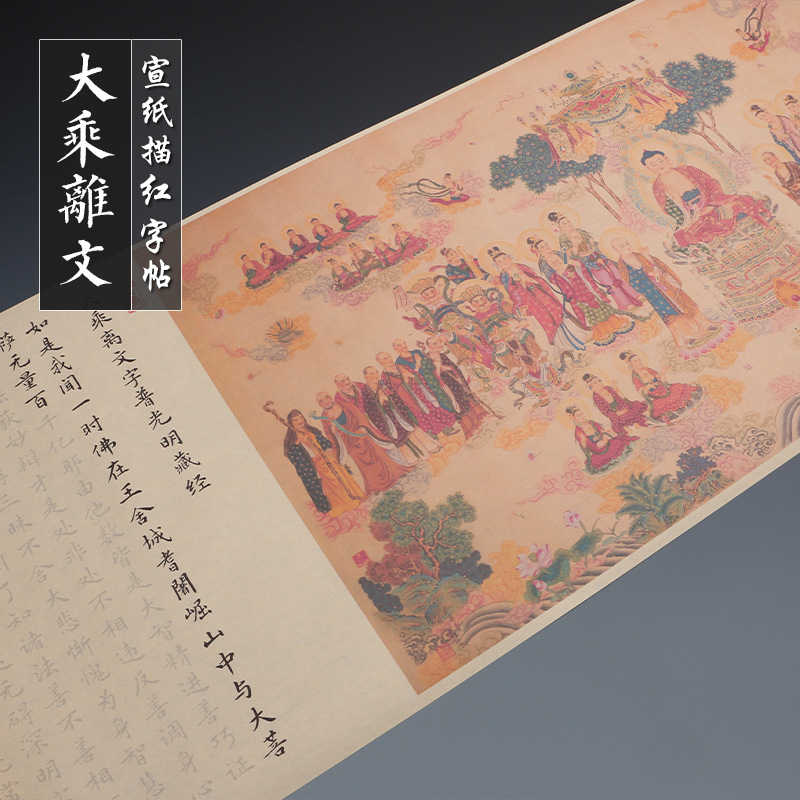 大乘離文
宣纸描红字帖
大乘离文字普光明藏经
如是我闻一时佛在王舍城耆闍崛山中与大菩
萨无量百千亿那由他数皆是大智精进善巧证
获妙辩才是处非处不相违反善调身心
三昧不舍大悲惭愧为身智慧
了知诸法善不善相
无碍深明